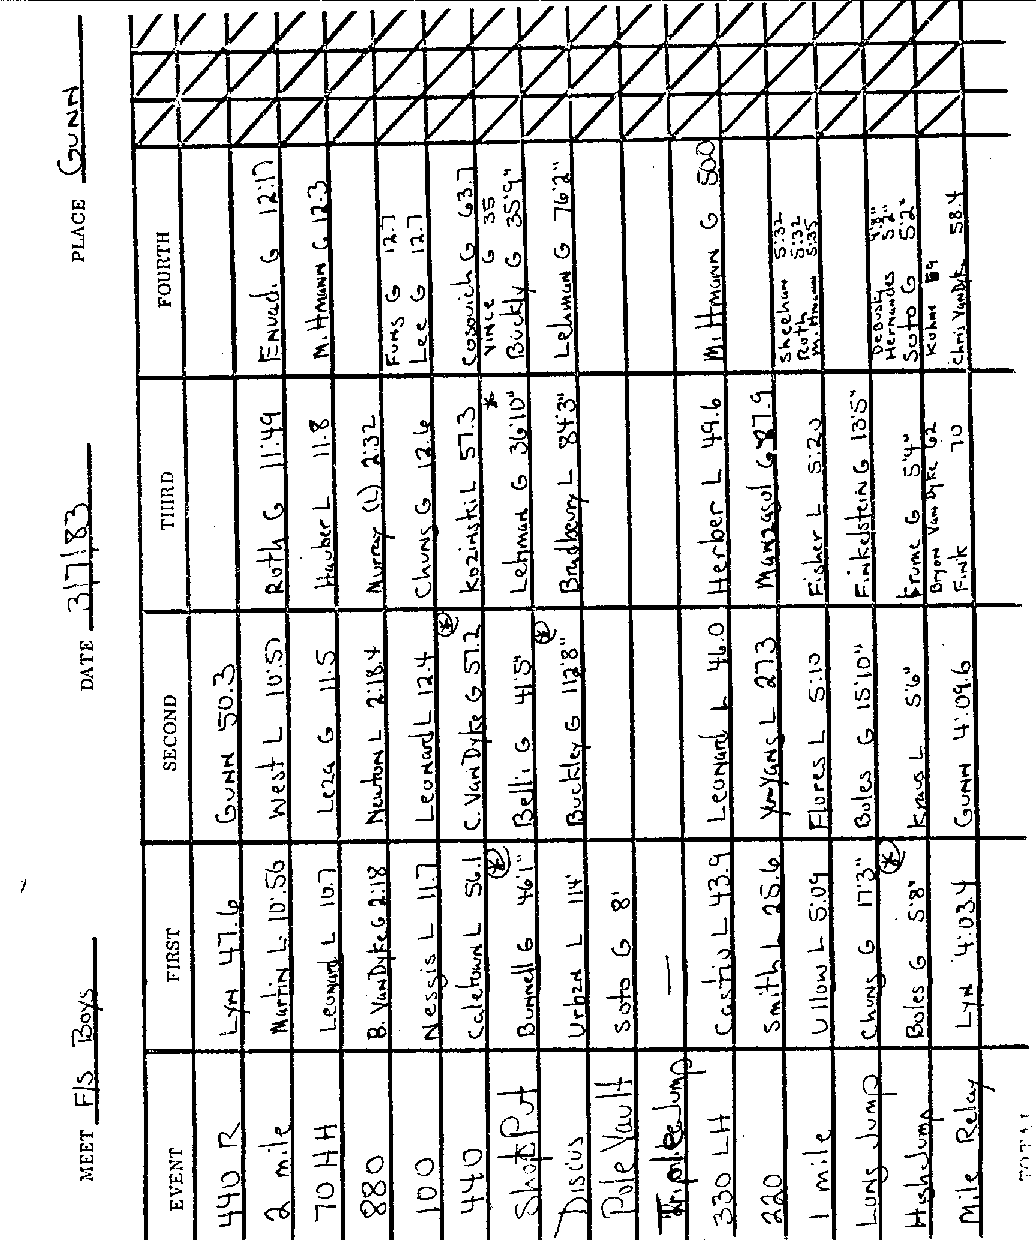 MEET F/S Boys DATE 3/7/83 PLACE GUNN
EVENT FIRST SECOND THIRD FOURTH
440 R Lyn 47.6 GUNN 50.3
2 mile Martin L 10:56 West L 10:57 Roth G 11:49 Envadi G 12:17
70 HH Leonard L 10.7 Leza G 11.5 Hauber L 11.8 M. Hmann G 12.3
880 B. Van Dyke G 2:18 Newton L 2:18.4 Murray (L) 2:32
100 Nessis L 11.7 Leonard L 12.4 Chung G 12.6 Fung G 12.7
Lee G 12.7
440 Caletown L 56.1 C. Van Dyke G 57.2 * Kozinski L 57.3 Cosovich G 63.7
Shot Put Bunnell G 46'1" * Belli G 41'5" Lehman G 36'10" * Vince G 35
Buckly G 35'9"
Discus Urban L 114' Buckley G 112'8" * Bradbury L 84'3" Lehman G 76'2"
Pole Vault Soto G 8'
Triple Jump —
330 LH Castio L 43.9 Leonard L 46.0 Herber L 49.6 M. Hmann G 50.0
220 Smith L 25.6 YunYang L 27.3 G 27.9
1 mile Ullow L 5:09 Flores L 5:10 Fisher L 5:20 Sheehan 5:32
Roth 5:32
M. Hmann 5:35
Long Jump Chung G 17'3" Boles G 15'10" Finkelstein G 13'5"
High Jump Boles G 5'8" * Kraus L 5'6" Krume G 5'4" DeBusk 4'8"
Hernandes 5'2"
Soto G 5'2"
Mile Relay Lyn 4:03.4 GUNN 4:09.6 Bryon Van Dyke 62 Kuhn 59
Fink 70 Chris VanDyk 58.4
TOTAL